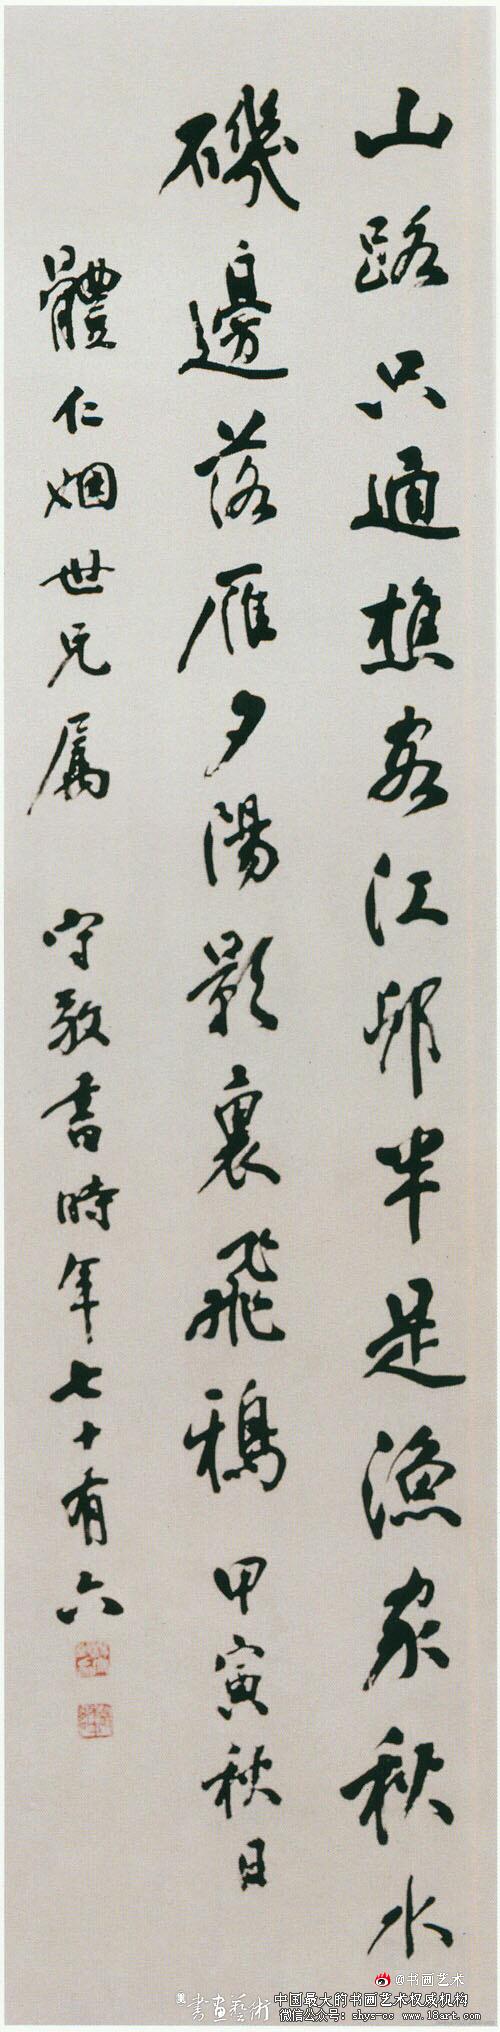 山路只通樵客江邨半是漁家秋水
磯邊落雁夕陽影裏飛鴉 甲寅秋日
體仁姻世兄属 守敬書時年七十有六
@书画艺术
書畫藝術
中国最大的书画艺术权威机构
微信公众号：shys-cc www.18art.com